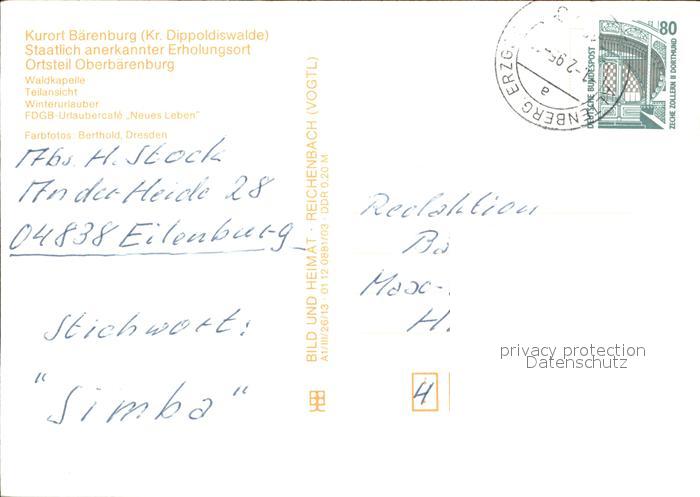 Kurort Bärenburg (Kr. Dippoldiswalde)
Staatlich anerkannter Erholungsort
Ortsteil Oberbärenburg
Waldkapelle
Teilansicht
Winterurlauber
FDGB-Urlaubercafé „Neues Leben"
Farbfotos: Berthold, Dresden
Abs. H. Stock
An der Heide 28
04838 Eilenburg
Stichwort:
"Simba"
BILD UND HEIMAT · REICHENBACH (VOGTL)
A1/III/26/13 · 01 12 0881/03 · DDR 0,20 M
ENBERG, ERZG.
2.95
a
80
DEUTSCHE BUNDESPOST
ZECHE ZOLLERN II DORTMUND
Redaktion
Bä
Max-
H.
4
privacy protection
Datenschutz